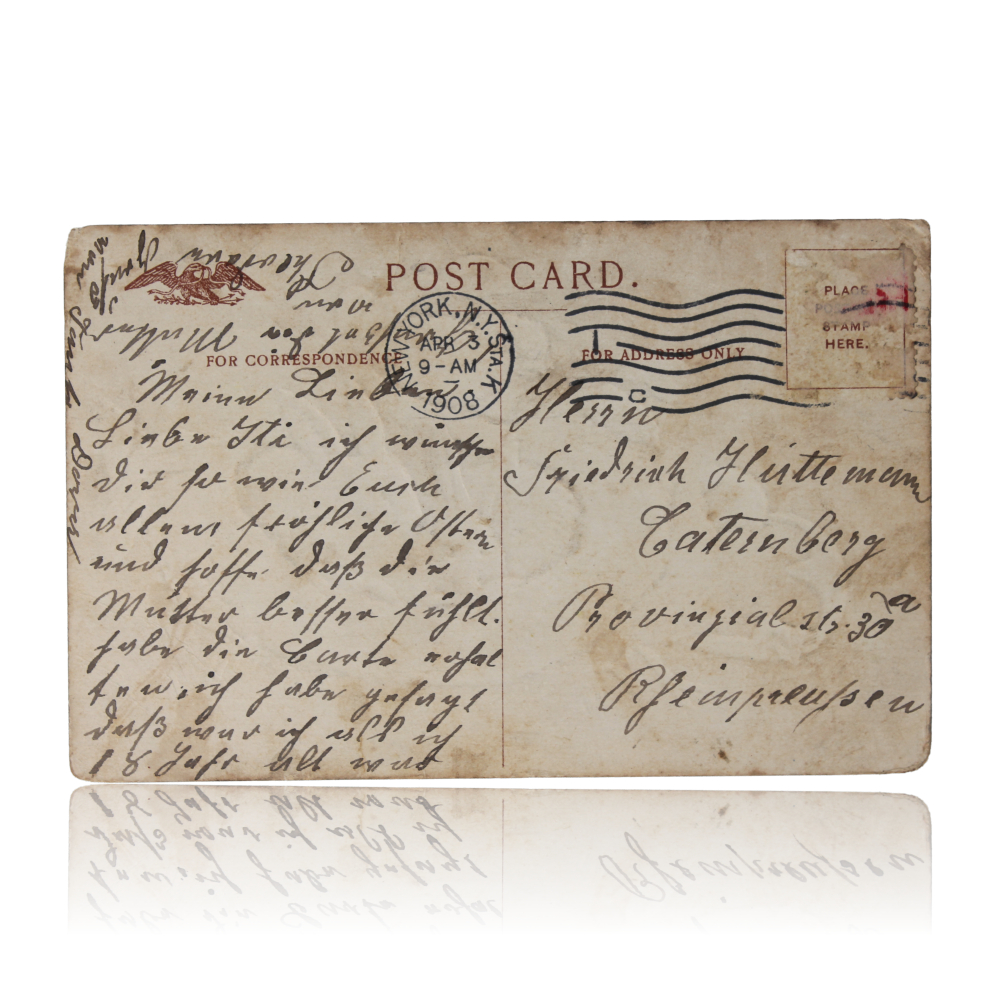 POST CARD.
FOR CORRESPONDENCE
FOR ADDRESS ONLY
PLACE
POSTAGE
STAMP
HERE.
NEW YORK, N.Y. STA. K
APR 3
9-AM
1908
C
Meine Lieben
Liebe Iti ich wünsche
Dir so wie Euch
allem fröhliche Ostern
und hoffe daß die
Mutter besser fühlt.
habe die Carte erhal
ten, ich habe gesagt
daß war ich als ich
18. Jahr alt war
von Tante Dora
Herrn
Friedrich Hüttemann
Caternberg
Provinzial str. 30a
Rheinpreußen